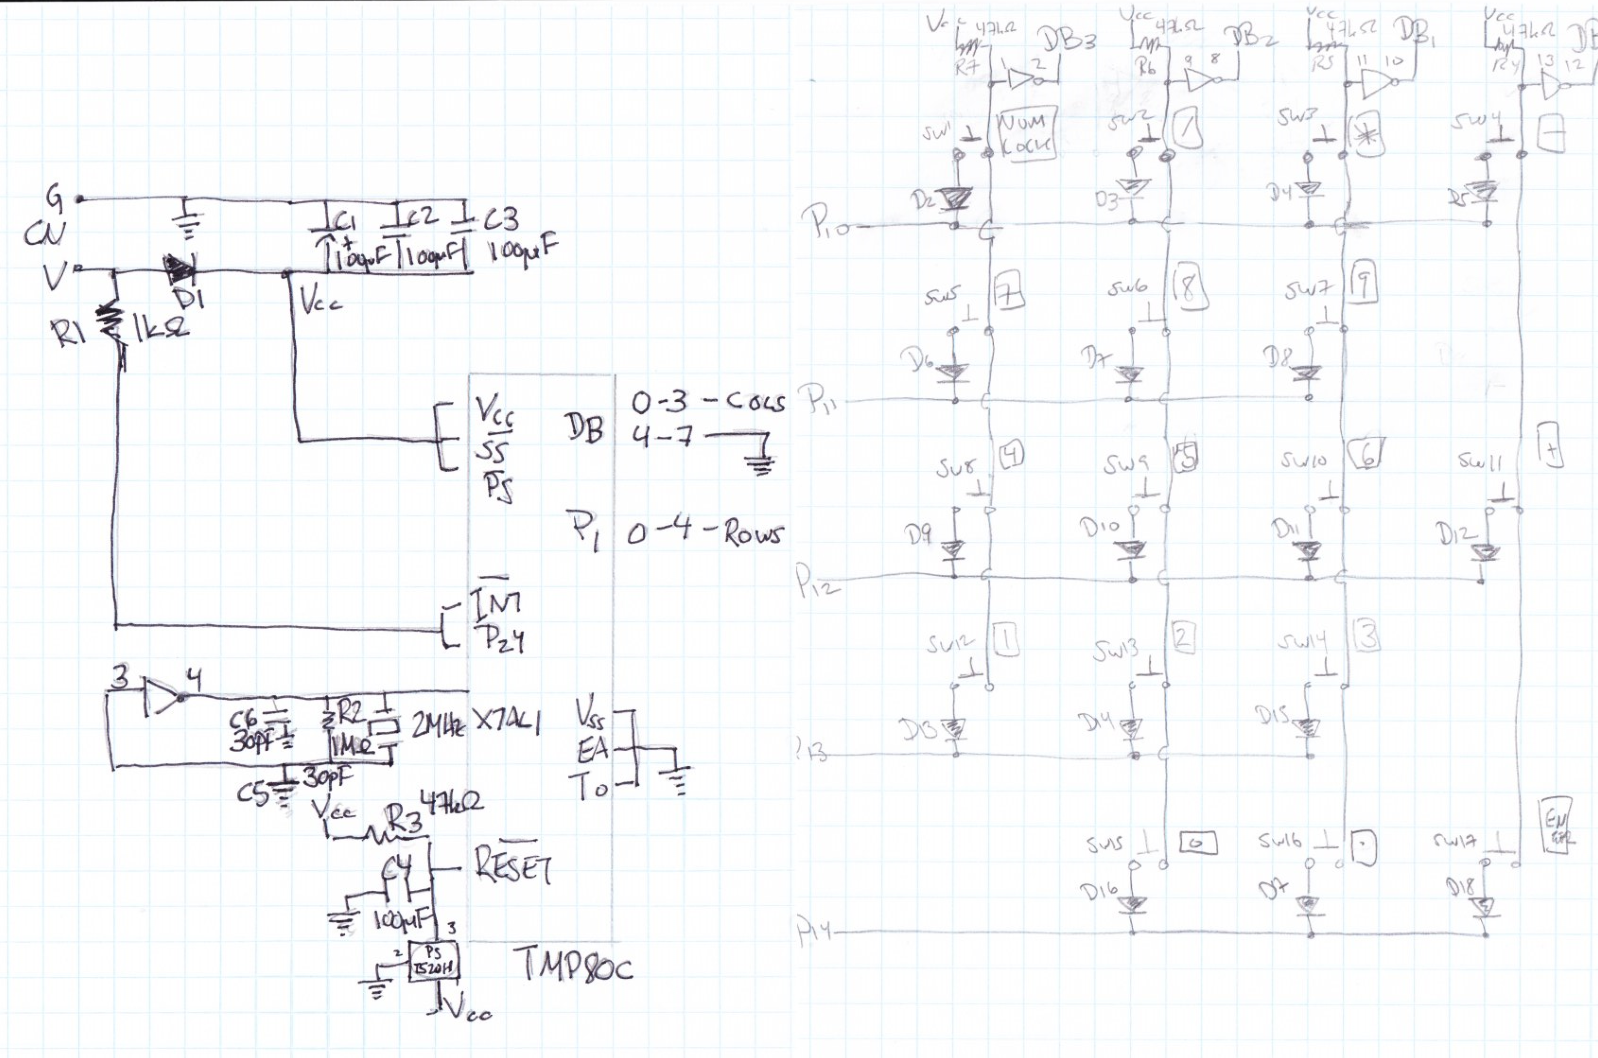 G
CN
V
C1
+
100µF
C2
100µF
C3
100µF
D1
Vcc
R1
1kΩ
Vcc
SS
PS
DB
0-3 - COLS
4-7
P1
0-4 - ROWS
INT
P24
3
4
C6
30pF
R2
1MΩ
2MHz
XTAL1
C5
30pF
Vss
EA
T0
Vcc
R3
47kΩ
RESET
C4
100µF
3
2
TMP80C
Vcc
Vcc
47kΩ
R7
1
2
DB3
Vcc
47kΩ
R6
9
8
DB2
Vcc
47kΩ
R5
11
10
DB1
Vcc
47kΩ
R4
13
12
SW1
NUM
LOCK
SW2
/
SW3
*
SW4
-
D2
D3
D4
D5
P10
SW5
7
SW6
8
SW7
9
D6
D7
D8
P11
SW8
4
SW9
5
SW10
6
SW11
+
D9
D10
D11
D12
P12
SW12
1
SW13
2
SW14
3
D13
D14
D15
P13
SW15
0
SW16
.
SW17
D16
D18
P14